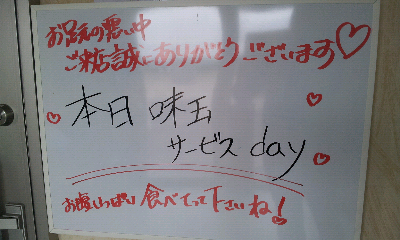 お足元の悪い中
ご来店誠にありがとうございます♡
本日 味玉
サービス day
お腹いっぱい 食べてって下さいね！